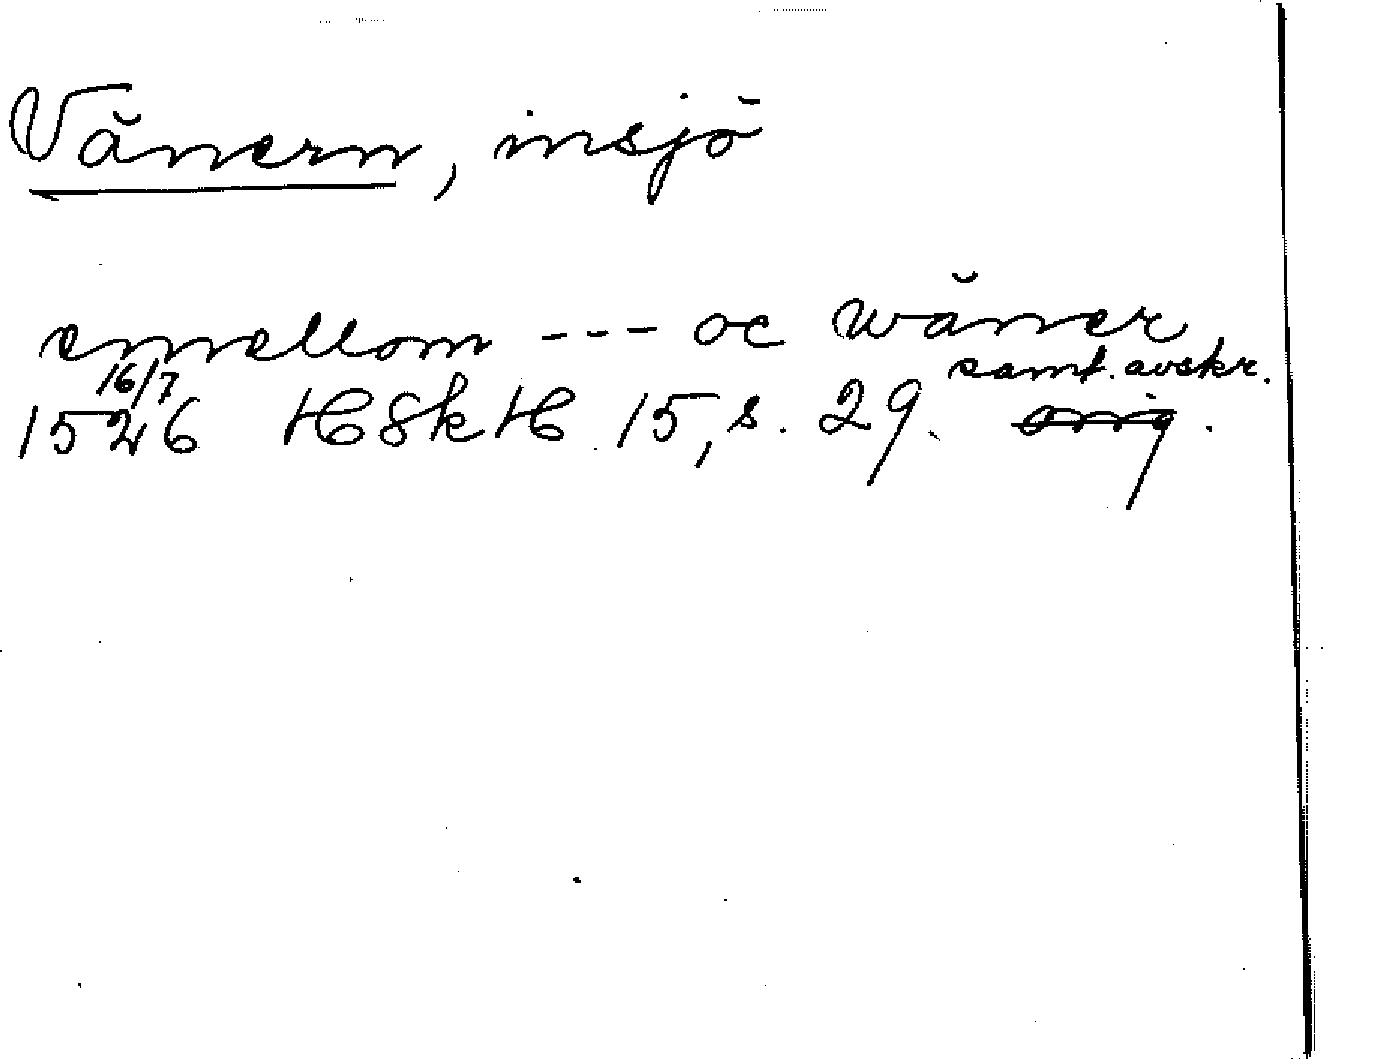 Vänern, insjö
emellom --- oc wäner
1526 16/7 HSkH 15, s. 29. samt. avskr. orig.